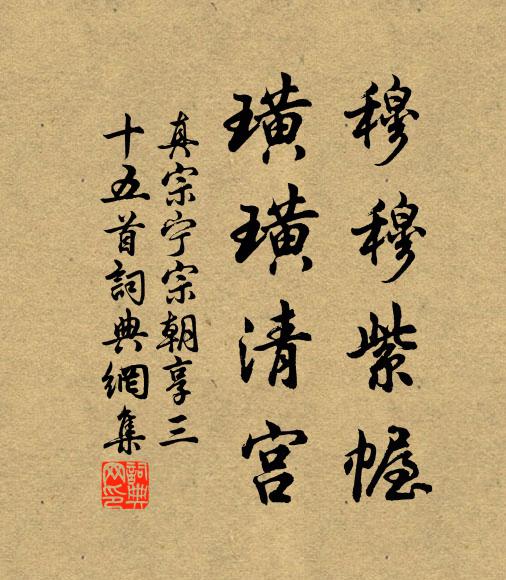 穆穆紫幄
璜璜清宫
真宗宁宗朝享三
十五首詞典網集
詞典
网印